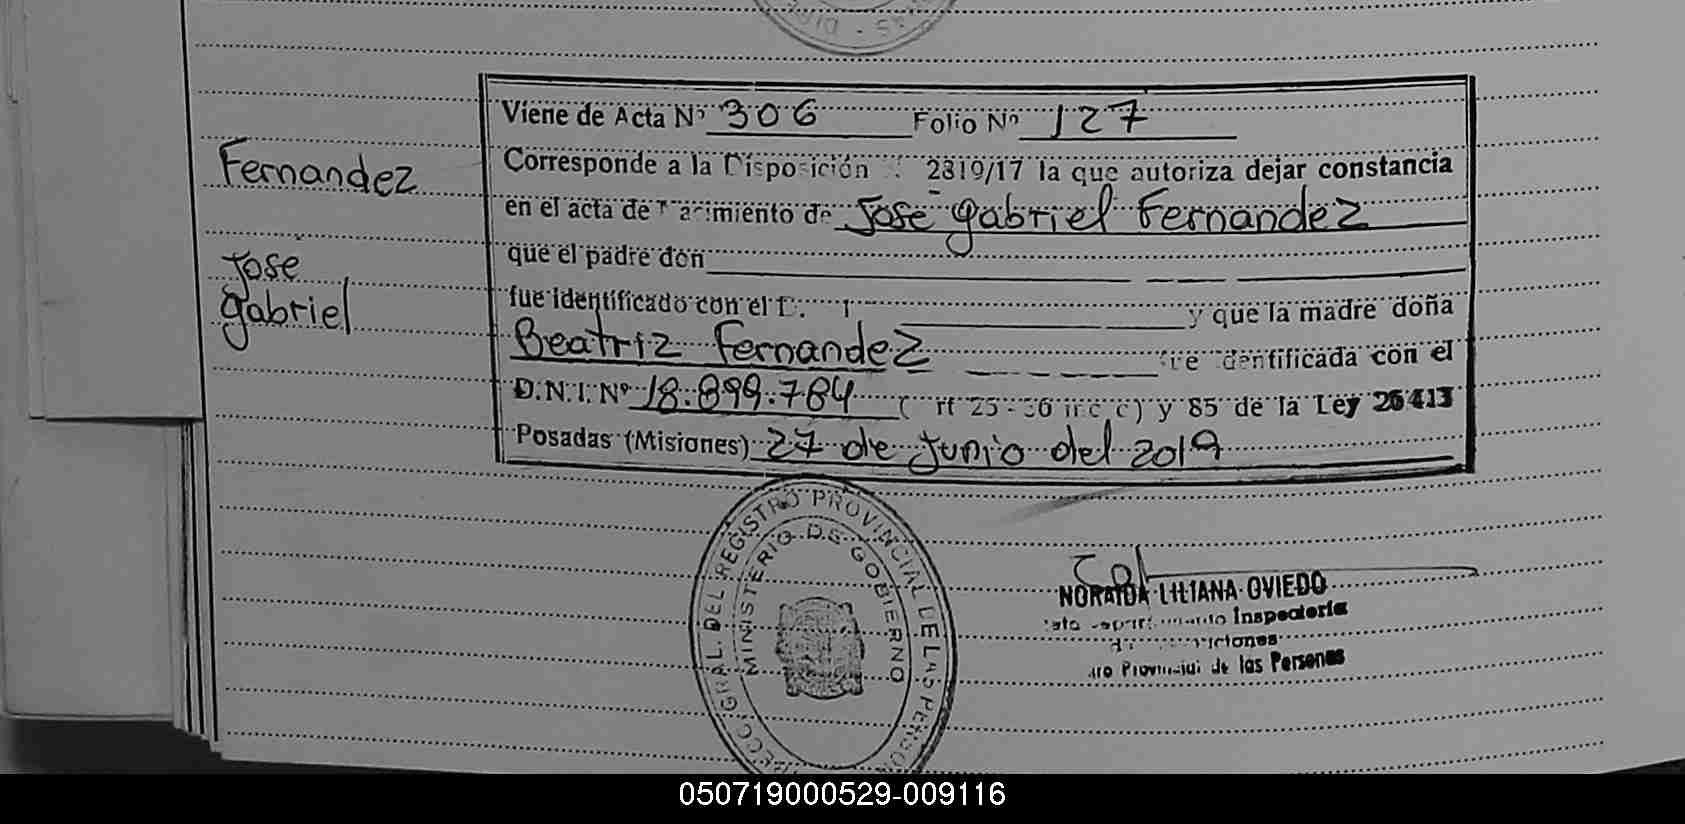 Viene de Acta Nº 306 Folio Nº 127
Fernandez
Corresponde a la Disposición 2819/17 la que autoriza dejar constancia
en el acta de Nacimiento de Jose gabriel Fernandez
que el padre don
Jose
gabriel
fue identificado con el D. I y que la madre doña
Beatriz Fernandez fue identificada con el
D.N.I. Nº 18.899.784 ( rt 25 - 36 inc c) y 85 de la Ley 26413
Posadas (Misiones) 27 de junio del 2019
DIRECC. GRAL. DEL REGISTRO PROVINCIAL DE LAS PERSON
MINISTERIO DE GOBIERNO
NORAIDA LILIANA OVIEDO
Inspectoria
Provincial de las Personas
050719000529-009116